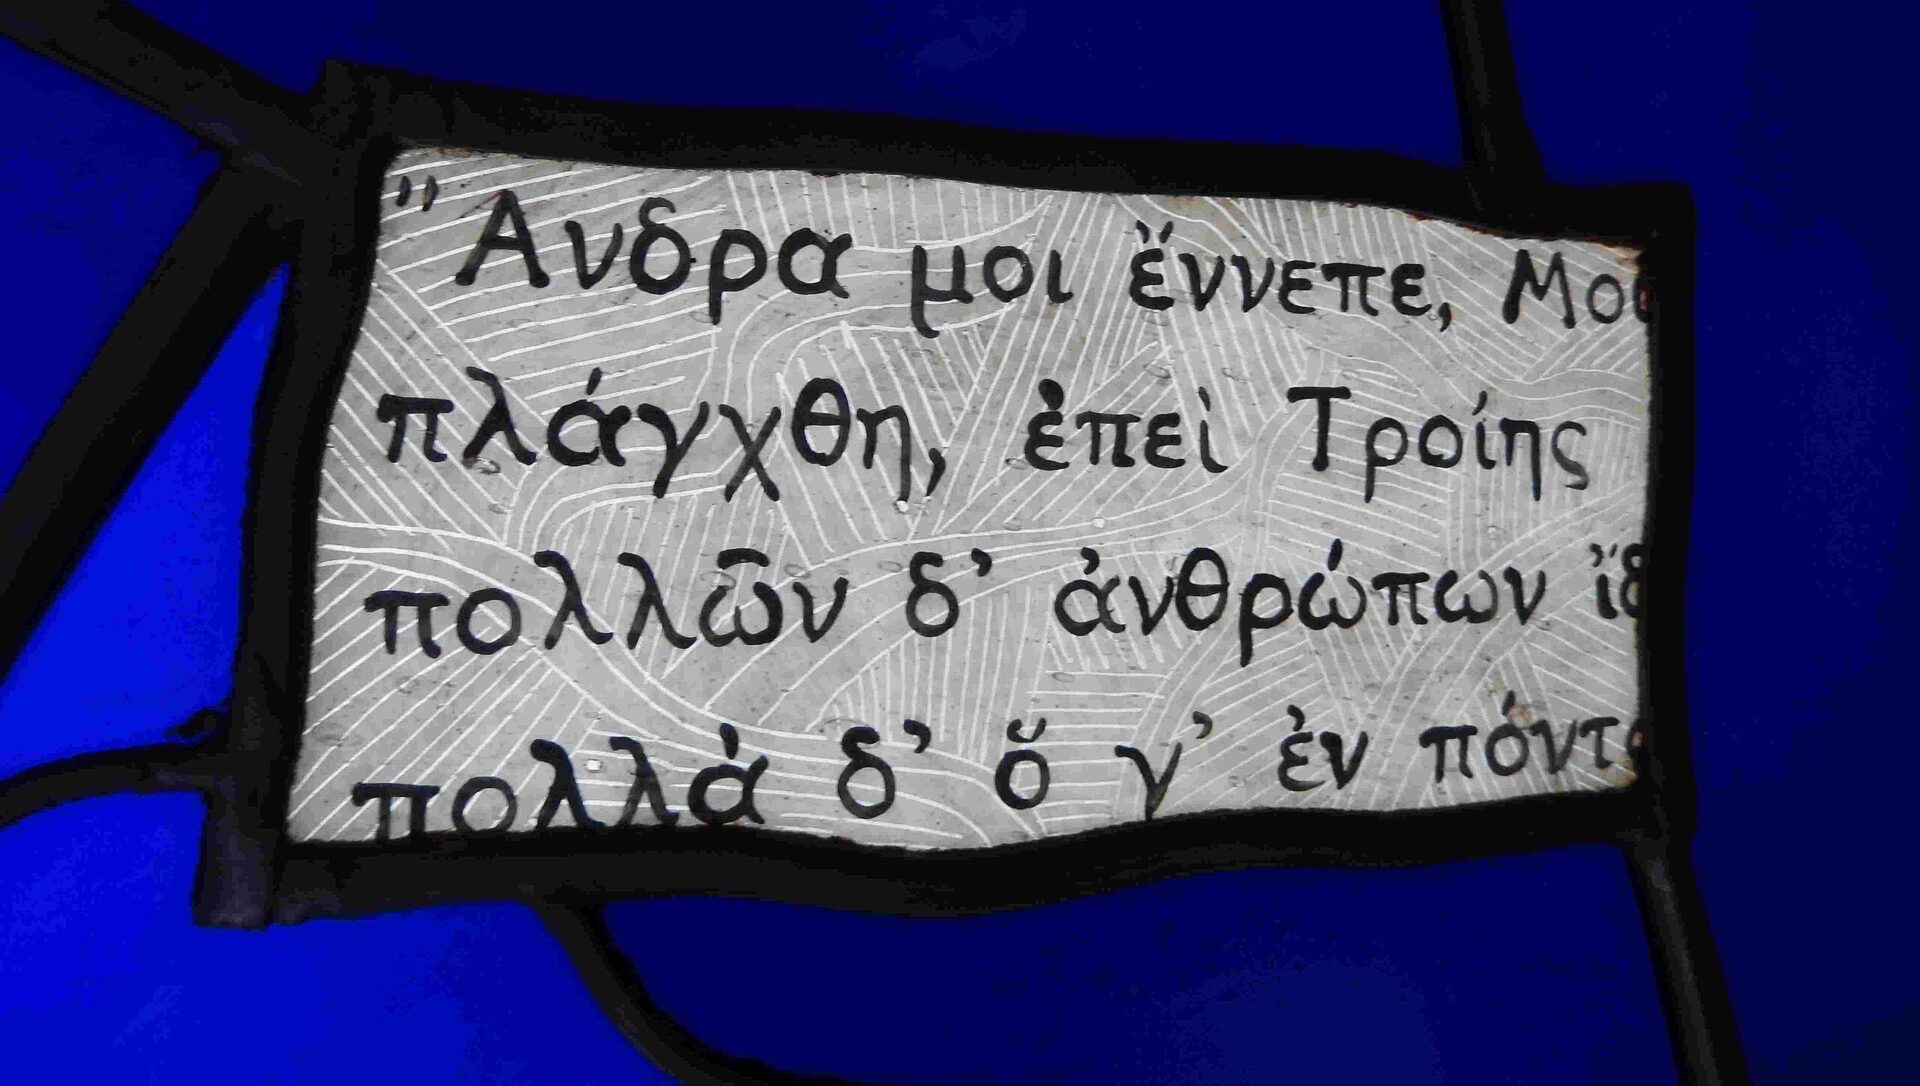 "Ανδρα μοι ἔννεπε, Μου
πλάγχθη, ἐπεὶ Τροίης
πολλῶν δ’ ἀνθρώπων ἴδ
πολλὰ δ’ ὅ γ’ ἐν πόντ